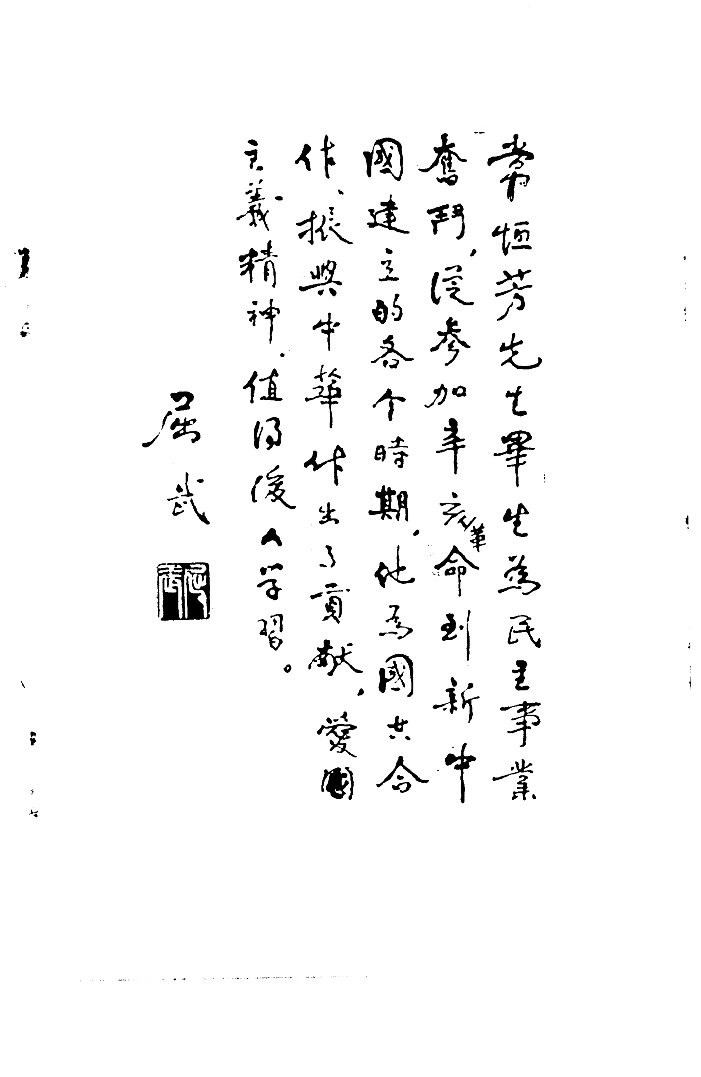 常恒芳先生畢生為民主事業
奮鬥，從參加辛亥革命到新中
國建立的各个時期，他為國共合
作、振興中華作出了貢献，愛國
主義精神，值得後人学習。
屈武